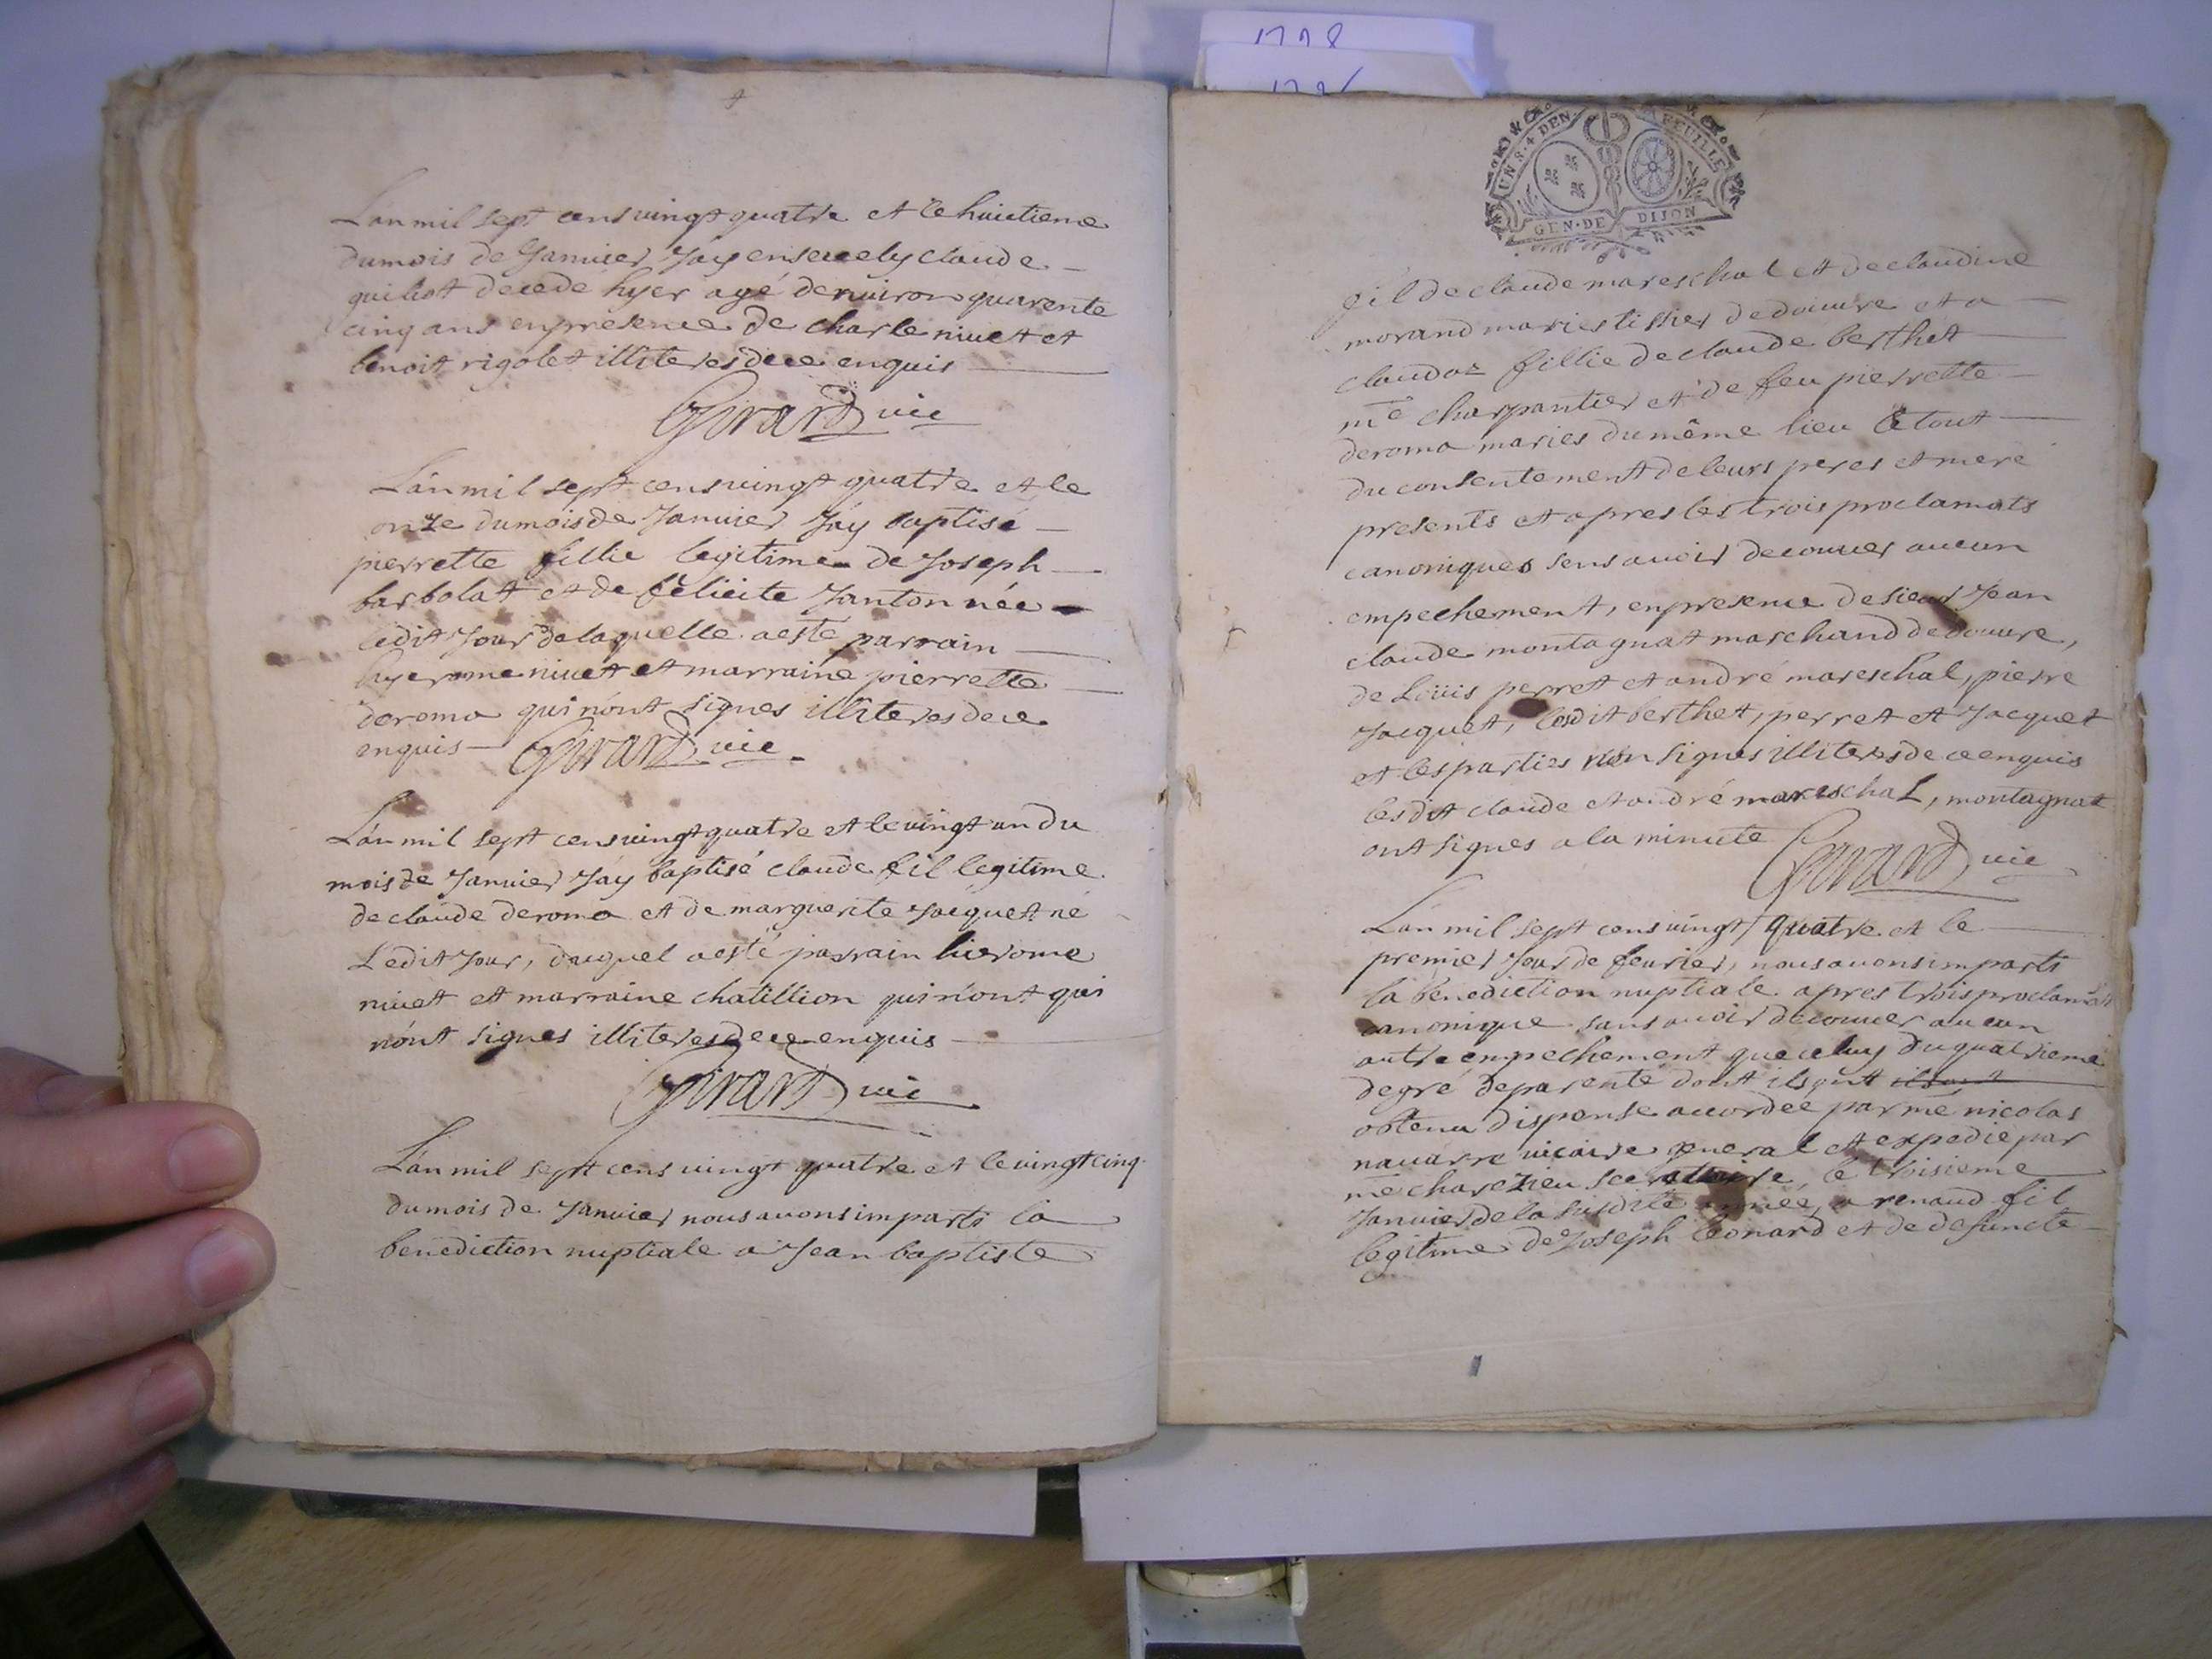 L'an mil sept cens vingt quatre et le huictieme
du mois de Janvier J'ay ensevely claude
quiliot decede hyer agé denviron quarente
cinq ans en presence de charle nivet et
benoit rigolet illiteres de ce enquis
Girard vic
L'an mil sept cens vingt quatre et le
onze du mois de Janvier J'ay baptisé
pierrette fillie legitime de Joseph
barbolat et de félicite Janton née
ledit Jour de laquelle a esté parrain
hyerome nivet et marraine pierrette
deroma qui n'ont signes illiteres de ce
enquis Girard vic
L'an mil sept cens vingt quatre et le vingt un du
mois de Janvier J'ay baptisé claude fil legitime
de claude deroma et de marguerite Jacquet né
Ledit Jour, duquel a esté parrain hierome
nivet et marraine chatillion qui n'ont qui
n'ont signes illiteres de ce enquis
Girard vic
L'an mil sept cens vingt quatre et le vingt cinq
du mois de Janvier nous avons imparti la
benediction nuptiale a Jean baptiste
1728
UN S. 4 DEN. LA FEUILLE
GEN. DE DIJON
fil de claude mareschal et de claudine
morand maries tissier de douvre et a
claudaz fillie de claude berthet
me charpantier et de feu pierrette
deroma maries du même lieu le tout
du consentement de leurs peres et mere
presents et apres les trois proclamats
canoniques sens avoir decouver aucun
empechement, en presence de sieur Jean
claude montagnat marchand de douvre,
de Loüis perret et andré mareschal, pierre
Jacquet, lesdit berthet, perret et Jacquet
et les parties non signes illiteres de ce enquis
lesdit claude et andré mareschal, montagnat
ont signes a la minute Girard vic
L'an mil sept cens vingt quatre et le
premier Jour de fevrier, nous avons imparti
la benediction nuptiale apres trois proclamat
canonique sans avoir decouver aucun
autre empechement que celuy du quatrieme
degré de parenté dont ils ont ils ont
obtenu dispense accordée par me nicolas
navarre vicaire general et expedie par
me charezieu secrettaire, le troisieme
Janvier de la susdite année, a renaud fil
legitime de Joseph leonard et de defuncte